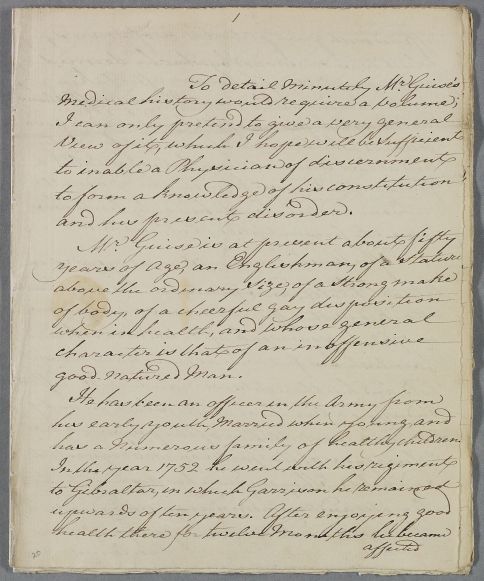 1
To detail Minutely Mr. Guise's
Medical history would require a Volume;
I can only pretend to give a very general
View of it, which I hope will be Sufficient
to inable a Physician of discernment
to form a knowledge of his constitution
and his present disorder.
Mr. Guise is at present about fifty
years of Age, an Englishman, of a Stature
above the ordinary Size, of a Strong make
of body, of a cheerful gay disposition
when in health, and whose general
character is that of an inoffensive
good natured Man.
He has been an officer in the Army from
his early youth, Married when young, and
has a Numerous family of healthy children
In the year 1752 he went with his regiment
to Gibraltar, in which Garrison he remained
upwards of ten years. After enjoying good
health there for twelve Months he became
affected